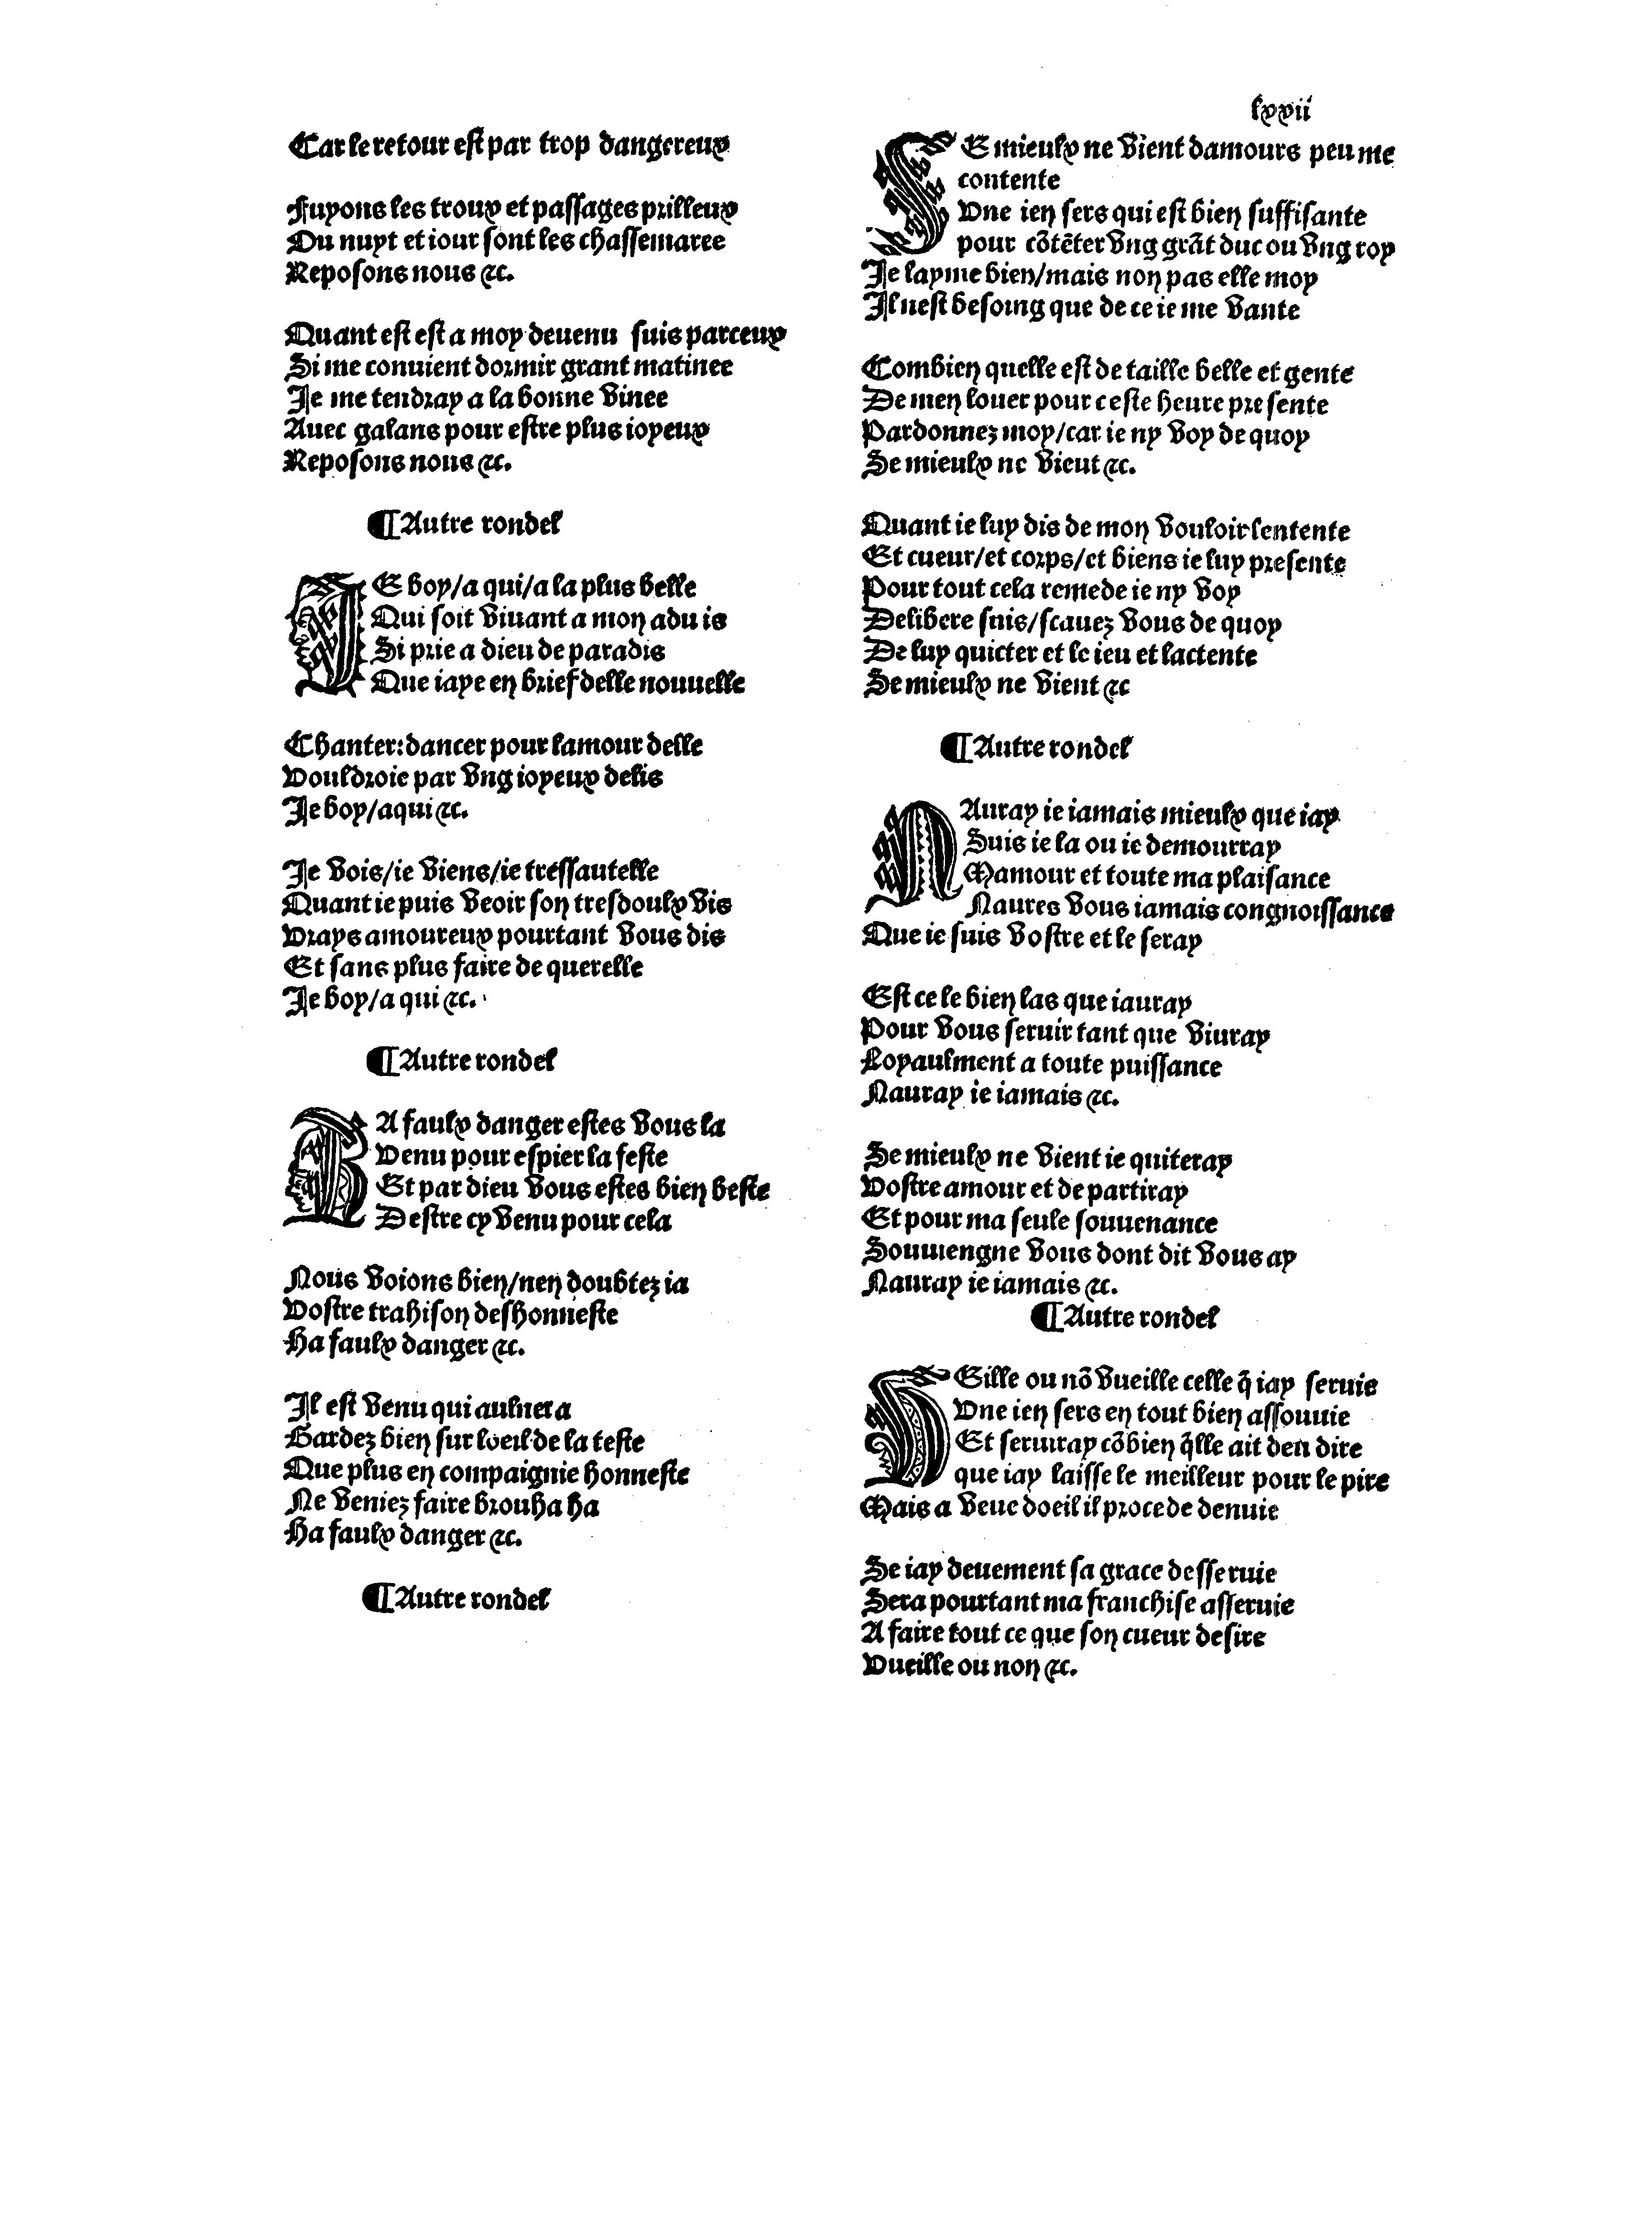 lxxii
Car le retour est par trop dangereux
Fuyons les troux et passages prilleux
Ou nuyt et iour sont les chassemaree
Reposons nous &c.
Quant est est a moy deuenu suis parceux
Si me conuient dormir grant matinee
Je me tendray a la bonne vinee
Auec galans pour estre plus ioyeux
Reposons nous &c.
¶Autre rondel
JE boy/a qui/a la plus belle
Qui soit viuant a mon adu is
Si prie a dieu de paradis
Que iaye en brief delle nouuelle
Chanter:dancer pour lamour delle
Vouldroie par vng ioyeux delis
Je boy/aqui &c.
Je vois/ie viens/ie tressautelle
Quant ie puis veoir son tresdoulx vis
Vrays amoureux pourtant vous dis
Et sans plus faire de querelle
Je boy/a qui &c.
¶Autre rondel
HA faulx danger estes vous la
Venu pour espier la feste
Et par dieu vous estes bien beste
Destre cy venu pour cela
Nous voions bien/nen doubtez ia
Vostre trahison deshonneste
Ha faulx danger &c.
Il est venu qui aulnera
Gardez bien sur loeil de la teste
Que plus en compaignie honneste
Ne veniez faire brouha ha
Ha faulx danger &c.
¶Autre rondel
SE mieulx ne vient damours peu me
contente
Vne ien sers qui est bien suffisante
pour cõtẽter vng grãt duc ou vng roy
Je layme bien/mais non pas elle moy
Il nest besoing que de ce ie me vante
Combien quelle est de taille belle et gente
De men louer pour ceste heure presente
Pardonnez moy/car ie ny voy de quoy
Se mieulx ne vient &c.
Quant ie luy dis de mon vouloir lentente
Et cueur/et corps/et biens ie luy presente
Pour tout cela remede ie ny voy
Delibere suis/scauez vous de quoy
De luy quicter et le ieu et lactente
Se mieulx ne vient &c
¶Autre rondel
NAuray ie iamais mieulx que iay
Suis ie la ou ie demourray
Mamour et toute ma plaisance
Naures vous iamais congnoissance
Que ie suis vostre et le seray
Est ce le bien las que iauray
Pour vous seruir tant que viuray
Loyaulment a toute puissance
Nauray ie iamais &c.
Se mieulx ne vient ie quiteray
Vostre amour et de partiray
Et pour ma seule souuenance
Souuiengne vous dont dit vous ay
Nauray ie iamais &c.
¶Autre rondel
VEille ou nõ vueille celle q̃ iay seruie
Vne ien sers en tout bien assouuie
Et seruiray cõbien q̃lle ait den dire
que iay laisse le meilleur pour le pire
Mais a veue doeil il procede denuie
Se iay deuement sa grace desseruie
Sera pourtant ma franchise asseruie
A faire tout ce que son cueur desire
Vueille ou non &c.